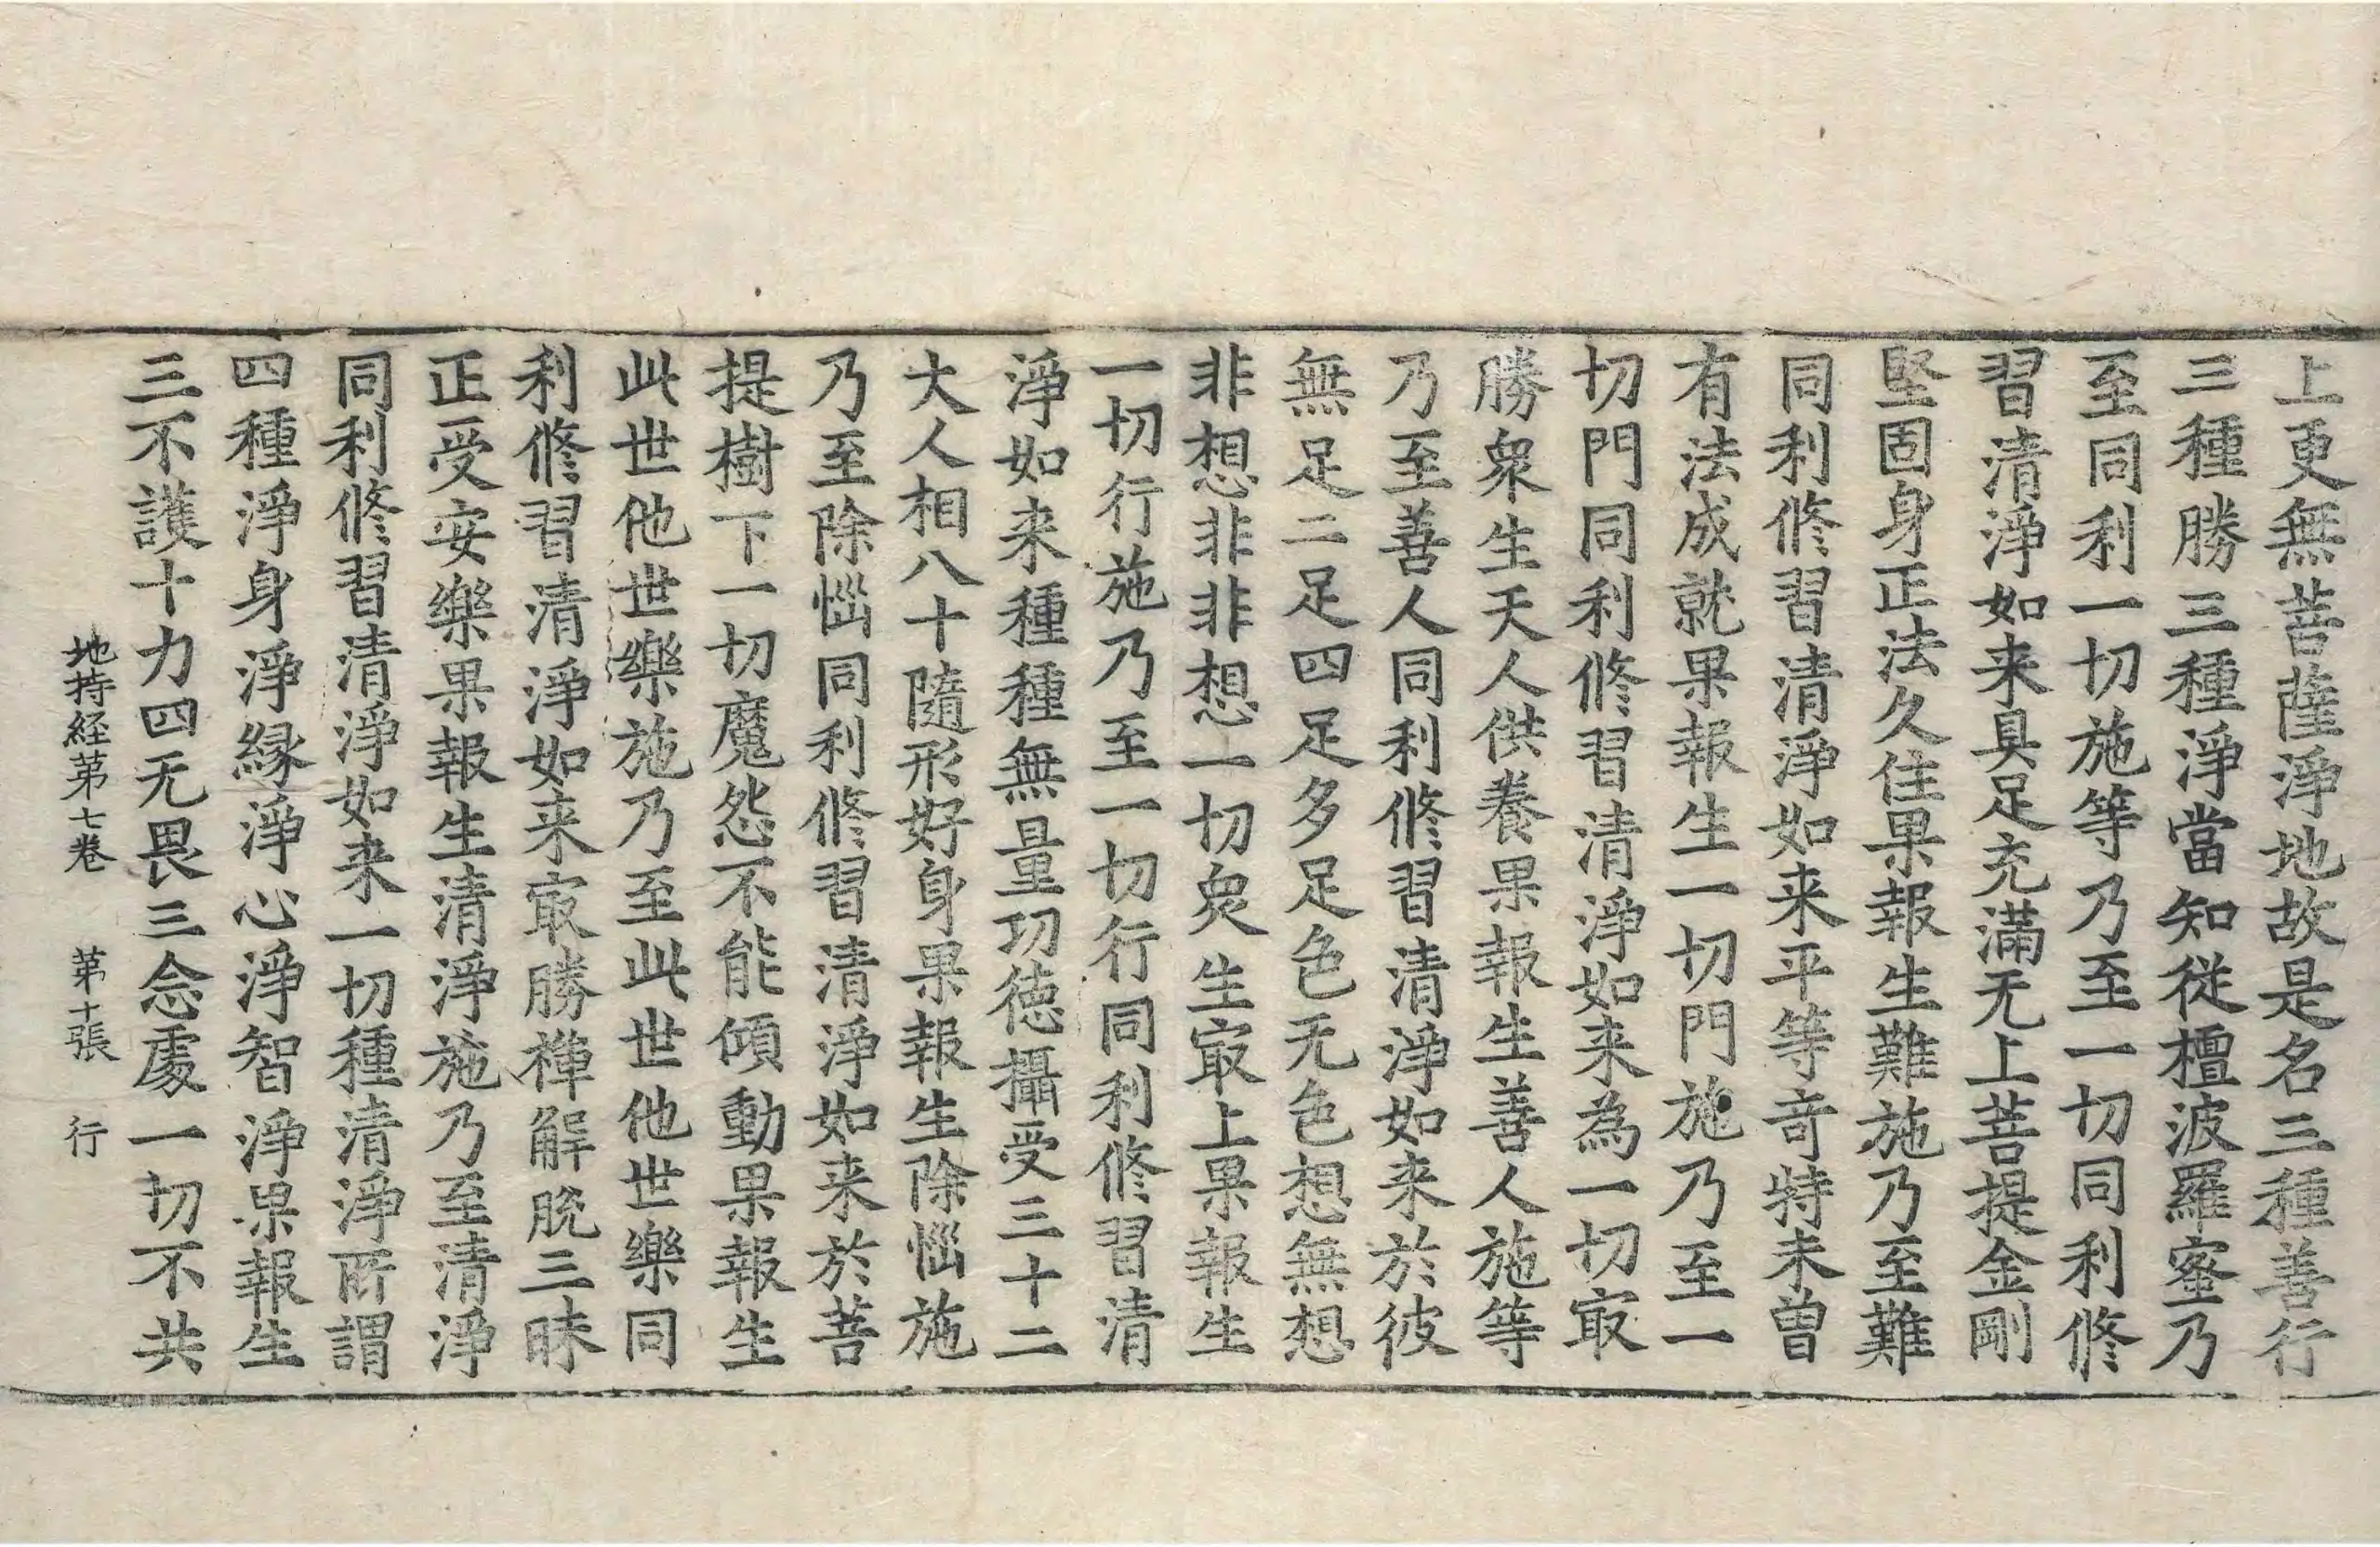 上更無菩薩淨地故是名三種善行
三種勝三種淨當知從檀波羅蜜乃
至同利一切施等乃至一切同利修
習清淨如来具足充滿无上菩提金剛
堅固身正法久住果報生難施乃至難
同利修習清淨如来平等竒特未曾
有法成就果報生一切門施乃至一
切門同利修習清淨如来為一切㝡
勝衆生天人供養果報生善人施等
乃至善人同利修習清淨如来於彼
無足二足四足多足色无色想無想
非想非非想一切衆生㝡上果報生
一切行施乃至一切行同利修習清
淨如来種種無量功德攝受三十二
大人相八十隨形好身果報生除惱施
乃至除惱同利修習清淨如来於菩
提樹下一切魔怨不能傾動果報生
此世他世樂施乃至此世他世樂同
利修習清淨如来㝡勝禅解脫三昧
正受安樂果報生清淨施乃至清淨
同利修習清淨如来一切種清淨所謂
四種淨身淨縁淨心淨智淨果報生
三不護十力四无畏三念處一切不共
地持経第七卷 第十張 行